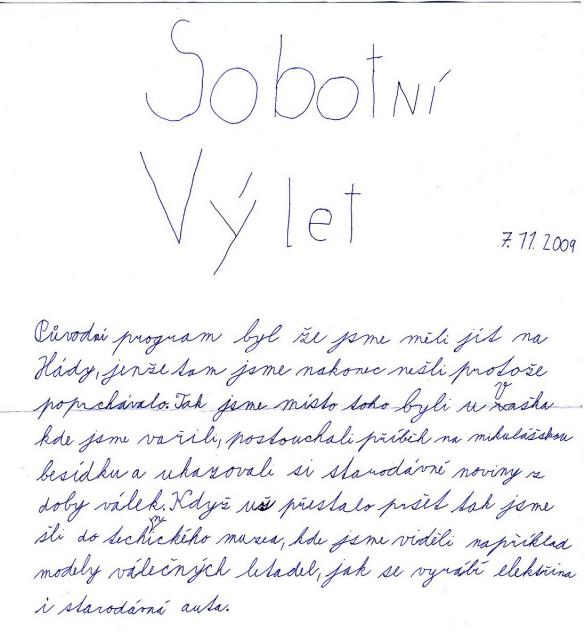 Sobotní
Výlet
7.11.2009
Původní program byl že jsme měli jít na
Hády, jenže tam jsme nakonec nešli protože
poprchávalo. Tak jsme místo toho byli u Vaška
kde jsme vařili, poslouchali příběh na mikulášskou
besídku a ukazovali si starodávné noviny z
doby válek. Když už přestalo pršet tak jsme
šli do technického muzea, kde jsme viděli například
modely válečných letadel, jak se vyrábí elektřina
i starodávná auta.